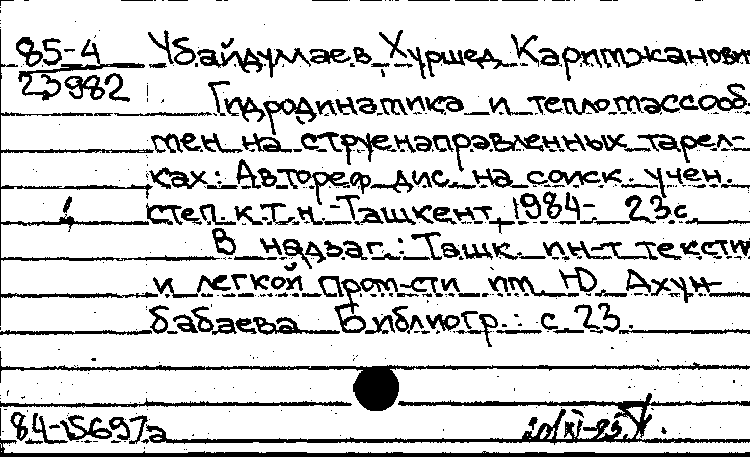 85-4 Убайдумаев, Хуршед Каримжанович
23982
Гидродинамика и тепломассооб
мен на струенаправленных тарел-
ках: Автореф. дис. на соиск. учен.
степ. к.т.н. - Ташкент, 1984 - 23с.
В надзаг.: Ташк. ин-т текстил
и легкой пром-сти им. Ю. Ахун-
бабаева Библиогр.: с. 23.
84-15697а